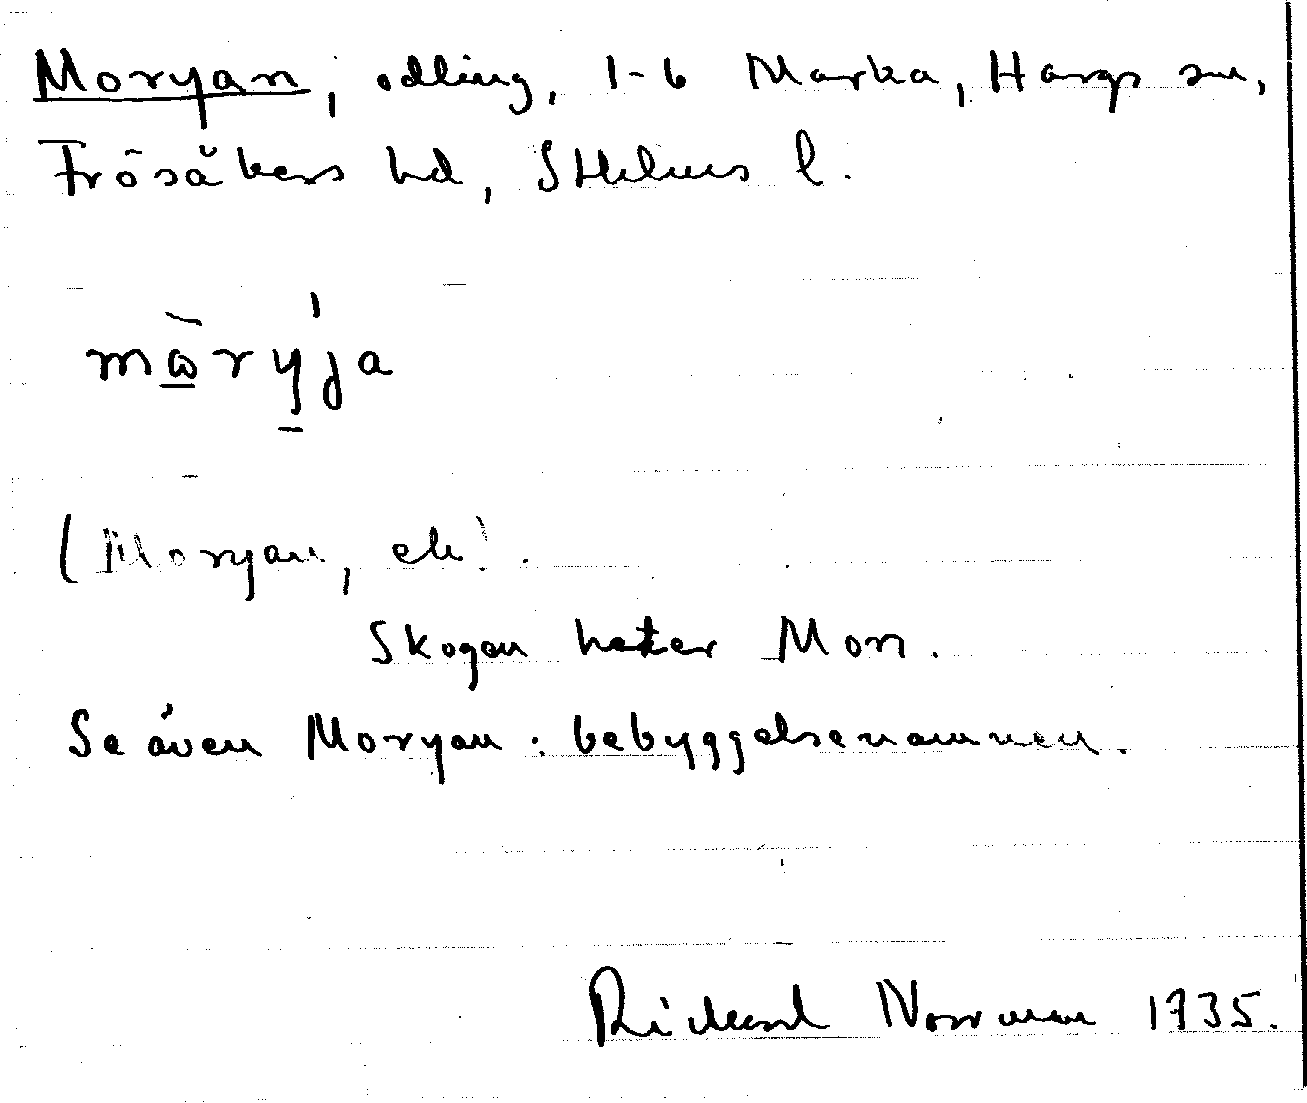 Moryan, odling, 1-6 Marka, Hargs sn,
Frösåkers hd, Sthlms l.
mὼ̠rý̠ja
(Moryan, ek).
Skogen heter Mon.
Se även Moryan: bebyggelsenamnen.
Rickard Norrman 1935.